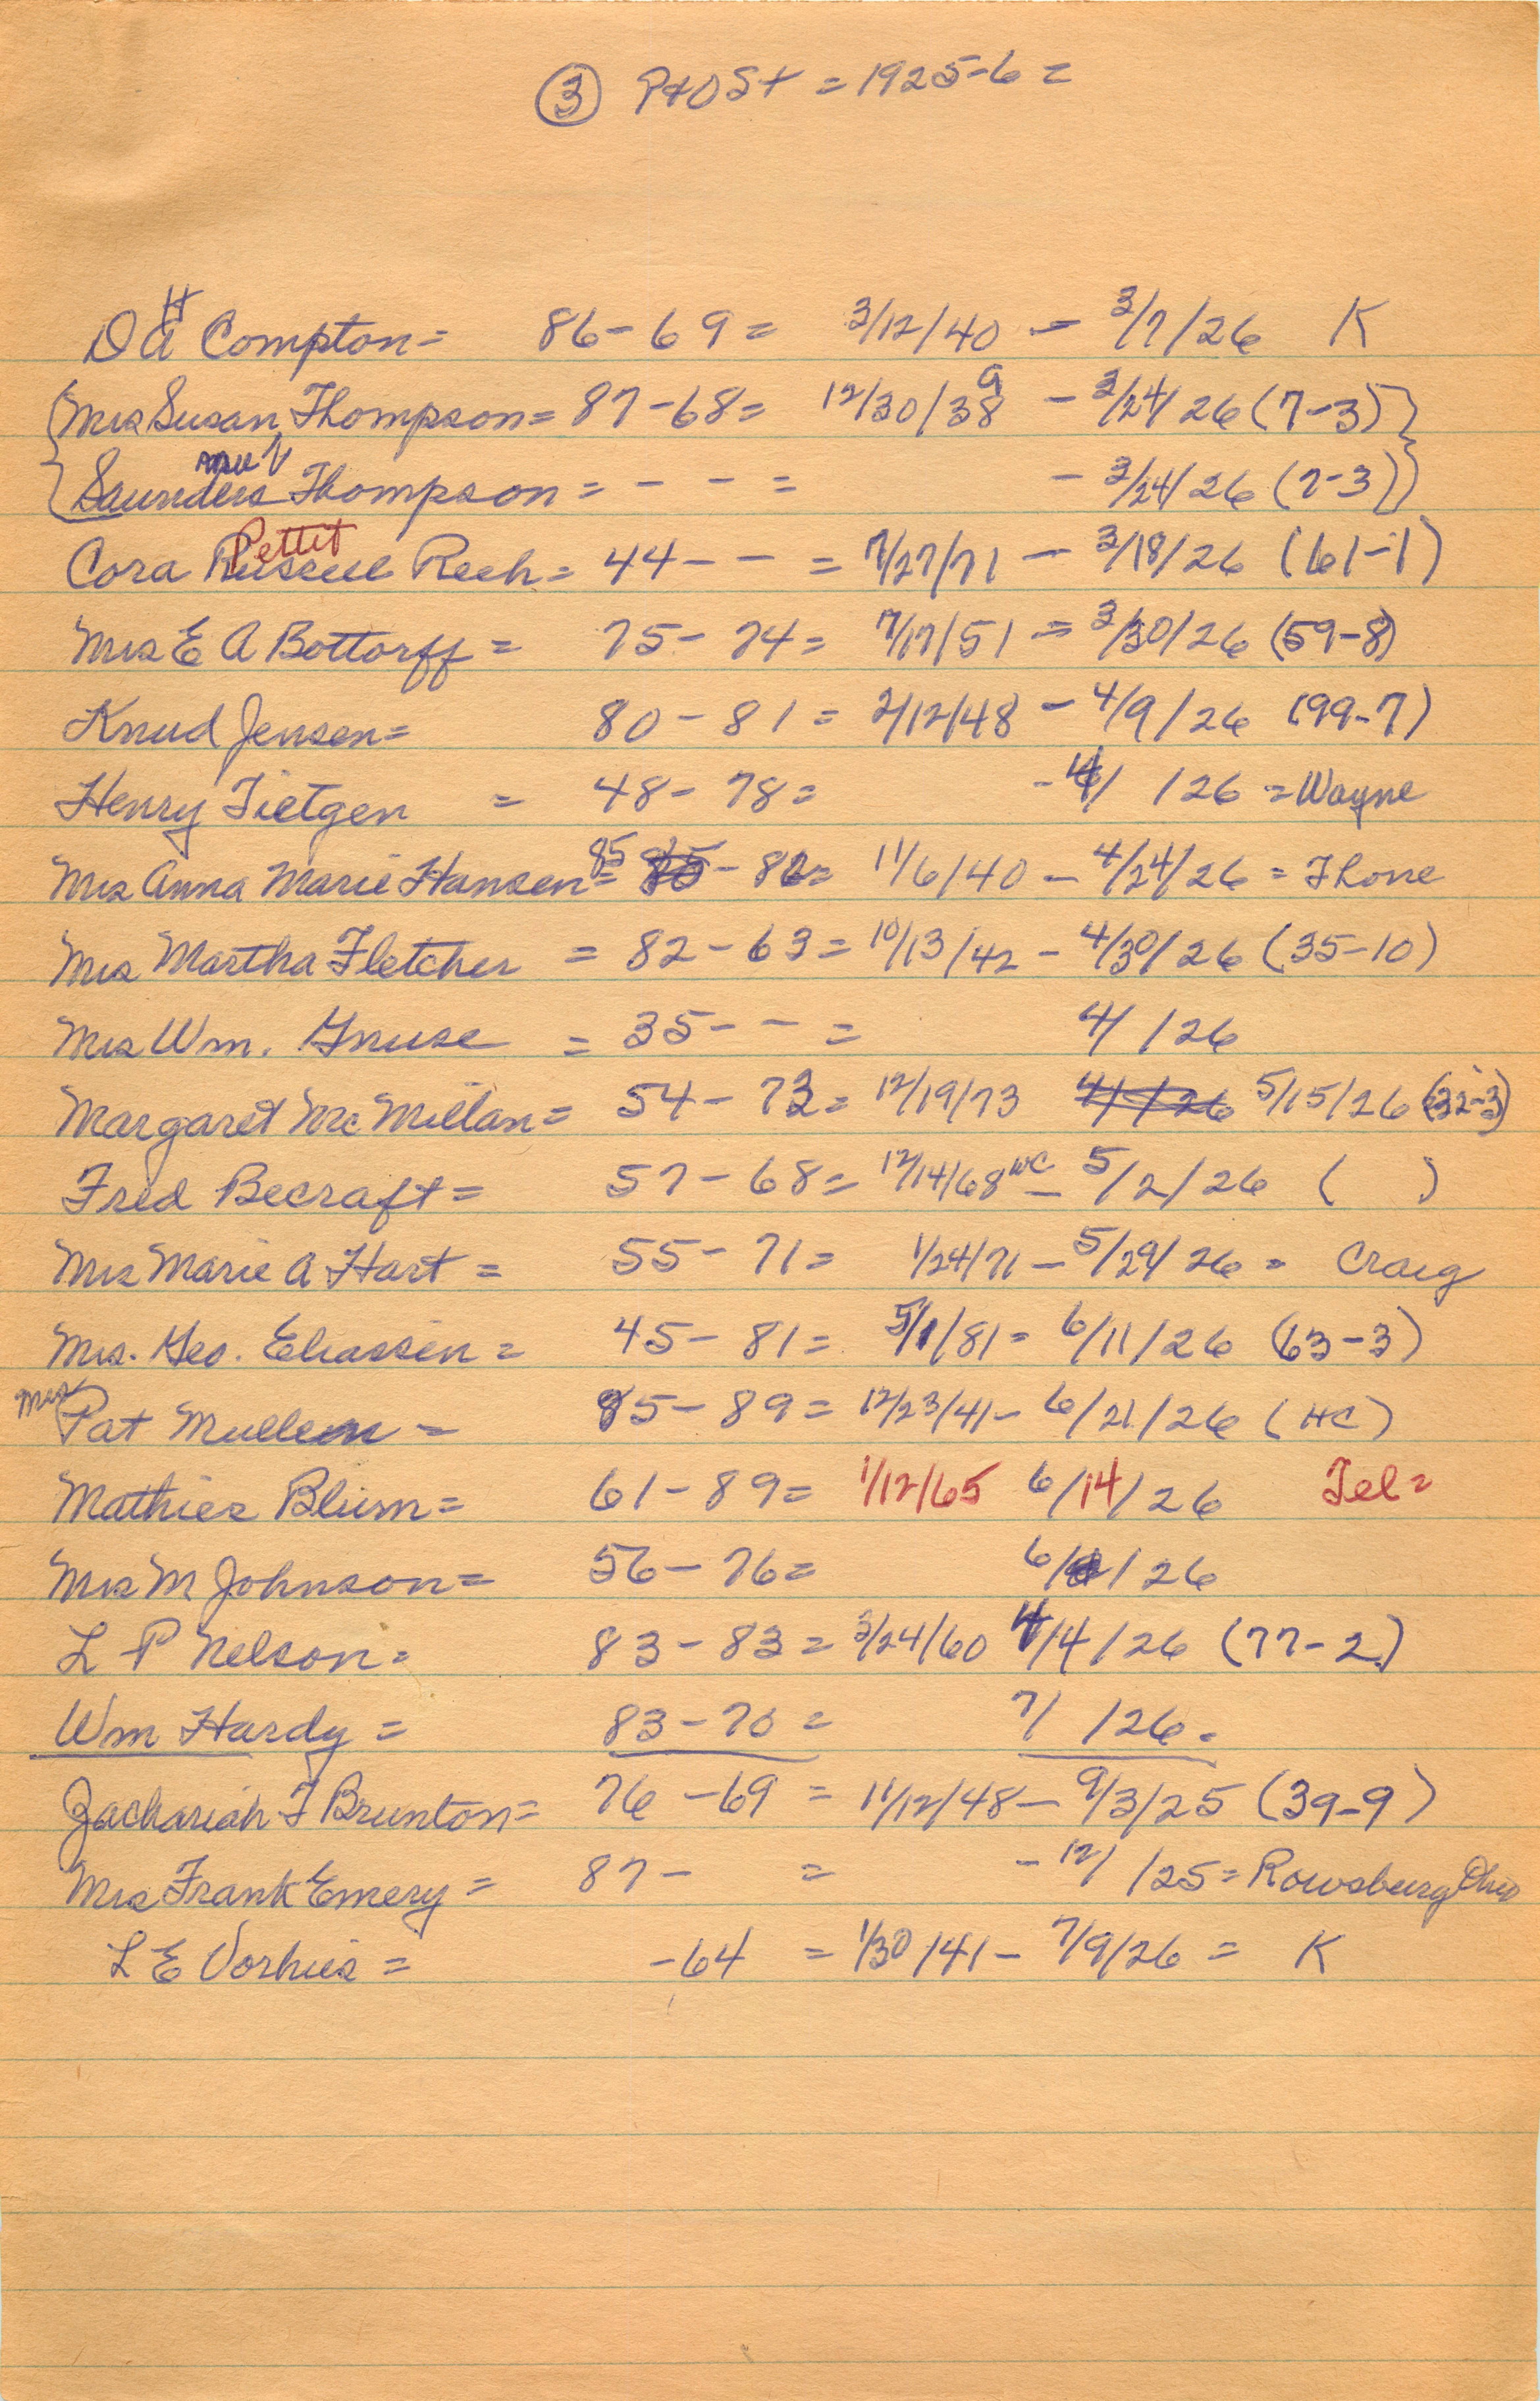 ③ P+O St = 1925-6 =
H
D A Compton = 86-69 = 3/12/40 - 3/7/26 K
9
{Mrs Susan Thompson = 87-68 = 12/30/38 - 3/24/26 (7-3)}
{Saunders Thompson = - - = - 3/24/26 (7-3)}
Pettit
Cora Russell Reeh = 44- - = 7/27/71 - 3/18/26 (61-1)
Mrs E A Bottorff = 75-74 = 7/17/51 = 3/30/26 (59-8)
Knud Jensen = 80-81 = 2/12/48 - 4/9/26 (99-7)
Henry Tietgen = 48-78 = - 4/ /26 = Wayne
Mrs Anna Marie Hansen = 85 - 82 = 11/6/40 - 4/24/26 = Thone
Mrs Martha Fletcher = 82-63 = 10/13/42 - 4/30/26 (35-10)
Mrs Wm. Gnuse = 35- - = 4/ /26
Margaret McMillan = 54-73 = 12/19/73 4/ /26 5/15/26 (32-3)
Fred Becraft = 57-68 = 12/14/68 WC - 5/2/26 ( )
Mrs Marie A Hart = 55-71 = 1/24/71 - 5/29/26 = Craig
Mrs. Geo. Eliassen = 45-81 = 5/1/81 - 6/11/26 (63-3)
Mrs Pat Mullen = 85-89 = 12/23/41 - 6/21/26 (HC)
Mathies Blum = 61-89 = 1/12/65 6/14/26 Tel =
Mrs M Johnson = 56-76 = 6/ /26
L P Nelson = 83-83 = 3/24/60 4/4/26 (77-2)
Wm Hardy = 83-70 = 7/ /26 -
Zachariah T Brunton = 76-69 = 11/12/48 - 9/3/25 (39-9)
Mrs Frank Emery = 87- = - 12/ /25 = Rowsburg Ohio
L E Vorhies = -64 = 1/30/41 - 7/9/26 = K